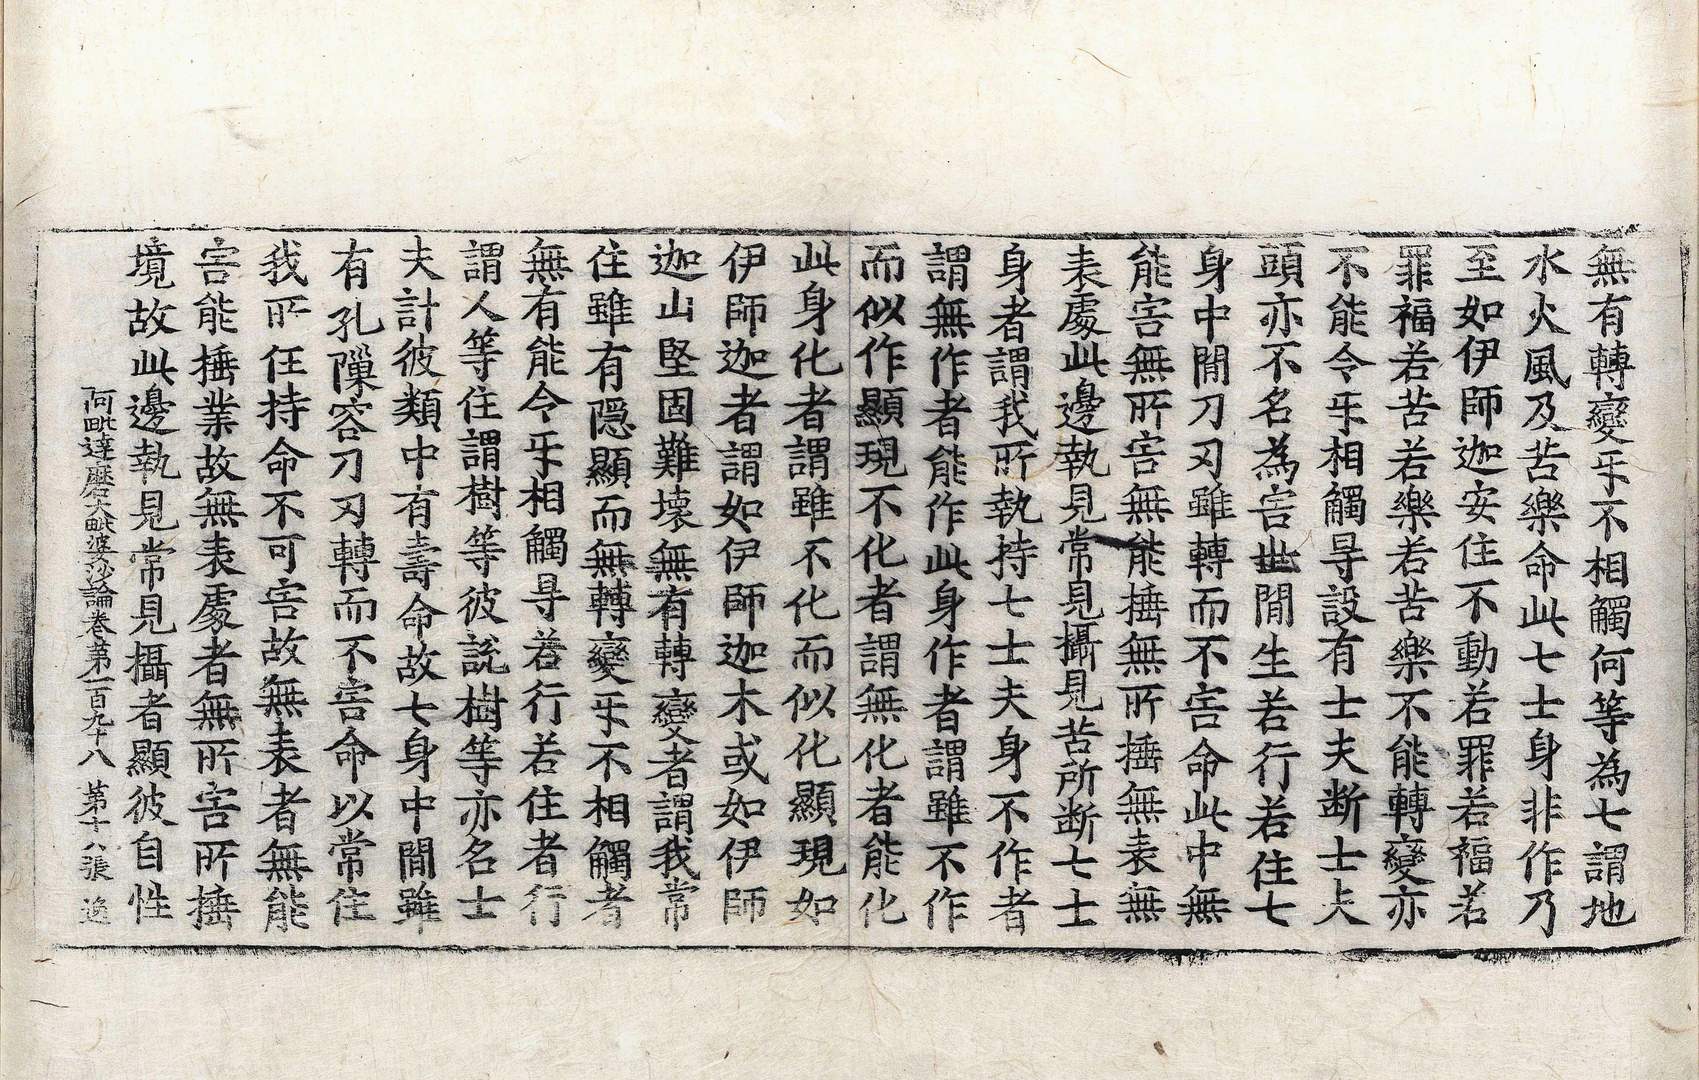 無有轉變乐不相觸何等為七謂地
水火風及苦樂命此七士身非作乃
至如伊師迦安住不動若罪若福若
罪福若苦若樂若苦樂不能轉變亦
不能令乐相觸㝵設有士夫断士夫
頭亦不名為害世間生若行若住七
身中間刀刃雖轉而不害命此中無
能害無所害無能捶無所捶無表無
表處此邊執見常見攝見苦所断七士
身者謂我所執持七士夫身不作者
謂無作者能作此身作者謂雖不作
而似作顯現不化者謂無化者能化
此身化者謂雖不化而似化顯現如
伊師迦者謂如伊師迦木或如伊師
迦山堅固難壞無有轉變者謂我常
住雖有隱顯而無轉變乐不相觸者
無有能令乐相觸㝵若行若住者行
謂人等住謂樹等彼說樹等亦名士
夫計彼類中有壽命故七身中間雖
有孔隟容刀刃轉而不害命以常住
我所任持命不可害故無表者無能
害能捶業故無表處者無所害所捶
境故此邊執見常見攝者顯彼自性
阿毗達磨大毗婆沙論卷第一百九十八 第十八張 逸